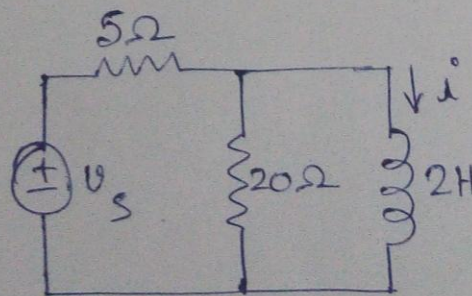 5Ω
i
+
−
υs
20Ω
2H